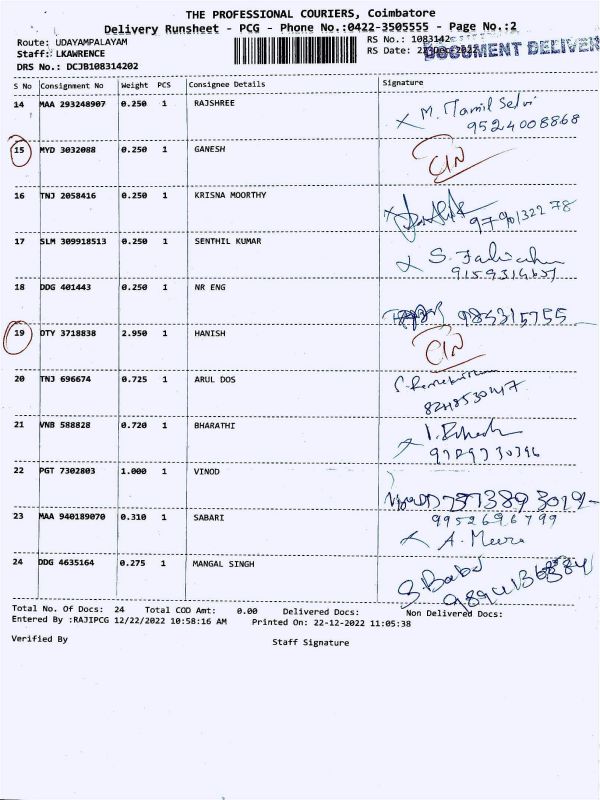 THE PROFESSIONAL COURIERS, Coimbatore
Delivery Runsheet - PCG - Phone No.:0422-3505555 - Page No.:2
Route: UDAYAMPALAYAM RS No.: 1083142
Staff: LKAWRENCE RS Date: DOCUMENT DELIVER
DRS No.: DCJB108314202
S No Consignment No Weight PCS Consignee Details Signature
14 MAA 293248907 0.250 1 RAJSHREE M. Tamil Selvi
9524008868
15 MYD 3032088 0.250 1 GANESH CIN
16 TNJ 2058416 0.250 1 KRISNA MOORTHY
9790132278
17 SLM 309918513 0.250 1 SENTHIL KUMAR S.
18 DDG 401443 0.250 1 NR ENG
19 DTY 3718838 2.950 1 HANISH CIN
20 TNJ 696674 0.725 1 ARUL DOS
21 VNB 588828 0.720 1 BHARATHI
22 PGT 7302803 1.000 1 VINOD
23 MAA 940189070 0.310 1 SABARI 9952696799
A. Meera
24 DDG 4635164 0.275 1 MANGAL SINGH S. Babu
Total No. Of Docs: 24 Total COD Amt: 0.00 Delivered Docs: Non Delivered Docs:
Entered By :RAJIPCG 12/22/2022 10:58:16 AM Printed On: 22-12-2022 11:05:38
Verified By Staff Signature